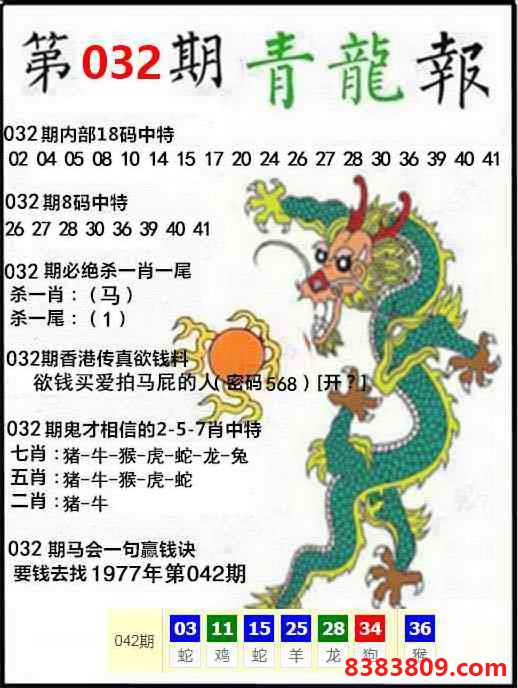 第032期 青龍報
032期内部18码中特
02 04 05 08 10 14 15 17 20 24 26 27 28 30 36 39 40 41
032期8码中特
26 27 28 30 36 39 40 41
032 期必绝杀一肖一尾
杀一肖：（马）
杀一尾：（1）
032期香港传真欲钱料
欲钱买爱拍马屁的人(密码568) [开？]
032期鬼才相信的2-5-7肖中特
七肖：猪-牛-猴-虎-蛇-龙-兔
五肖：猪-牛-猴-虎-蛇
二肖：猪-牛
032 期马会一句赢钱诀
要钱去找1977年第042期
042期 03 11 15 25 28 34 36
蛇 鸡 蛇 羊 龙 狗 猴
8383809.com